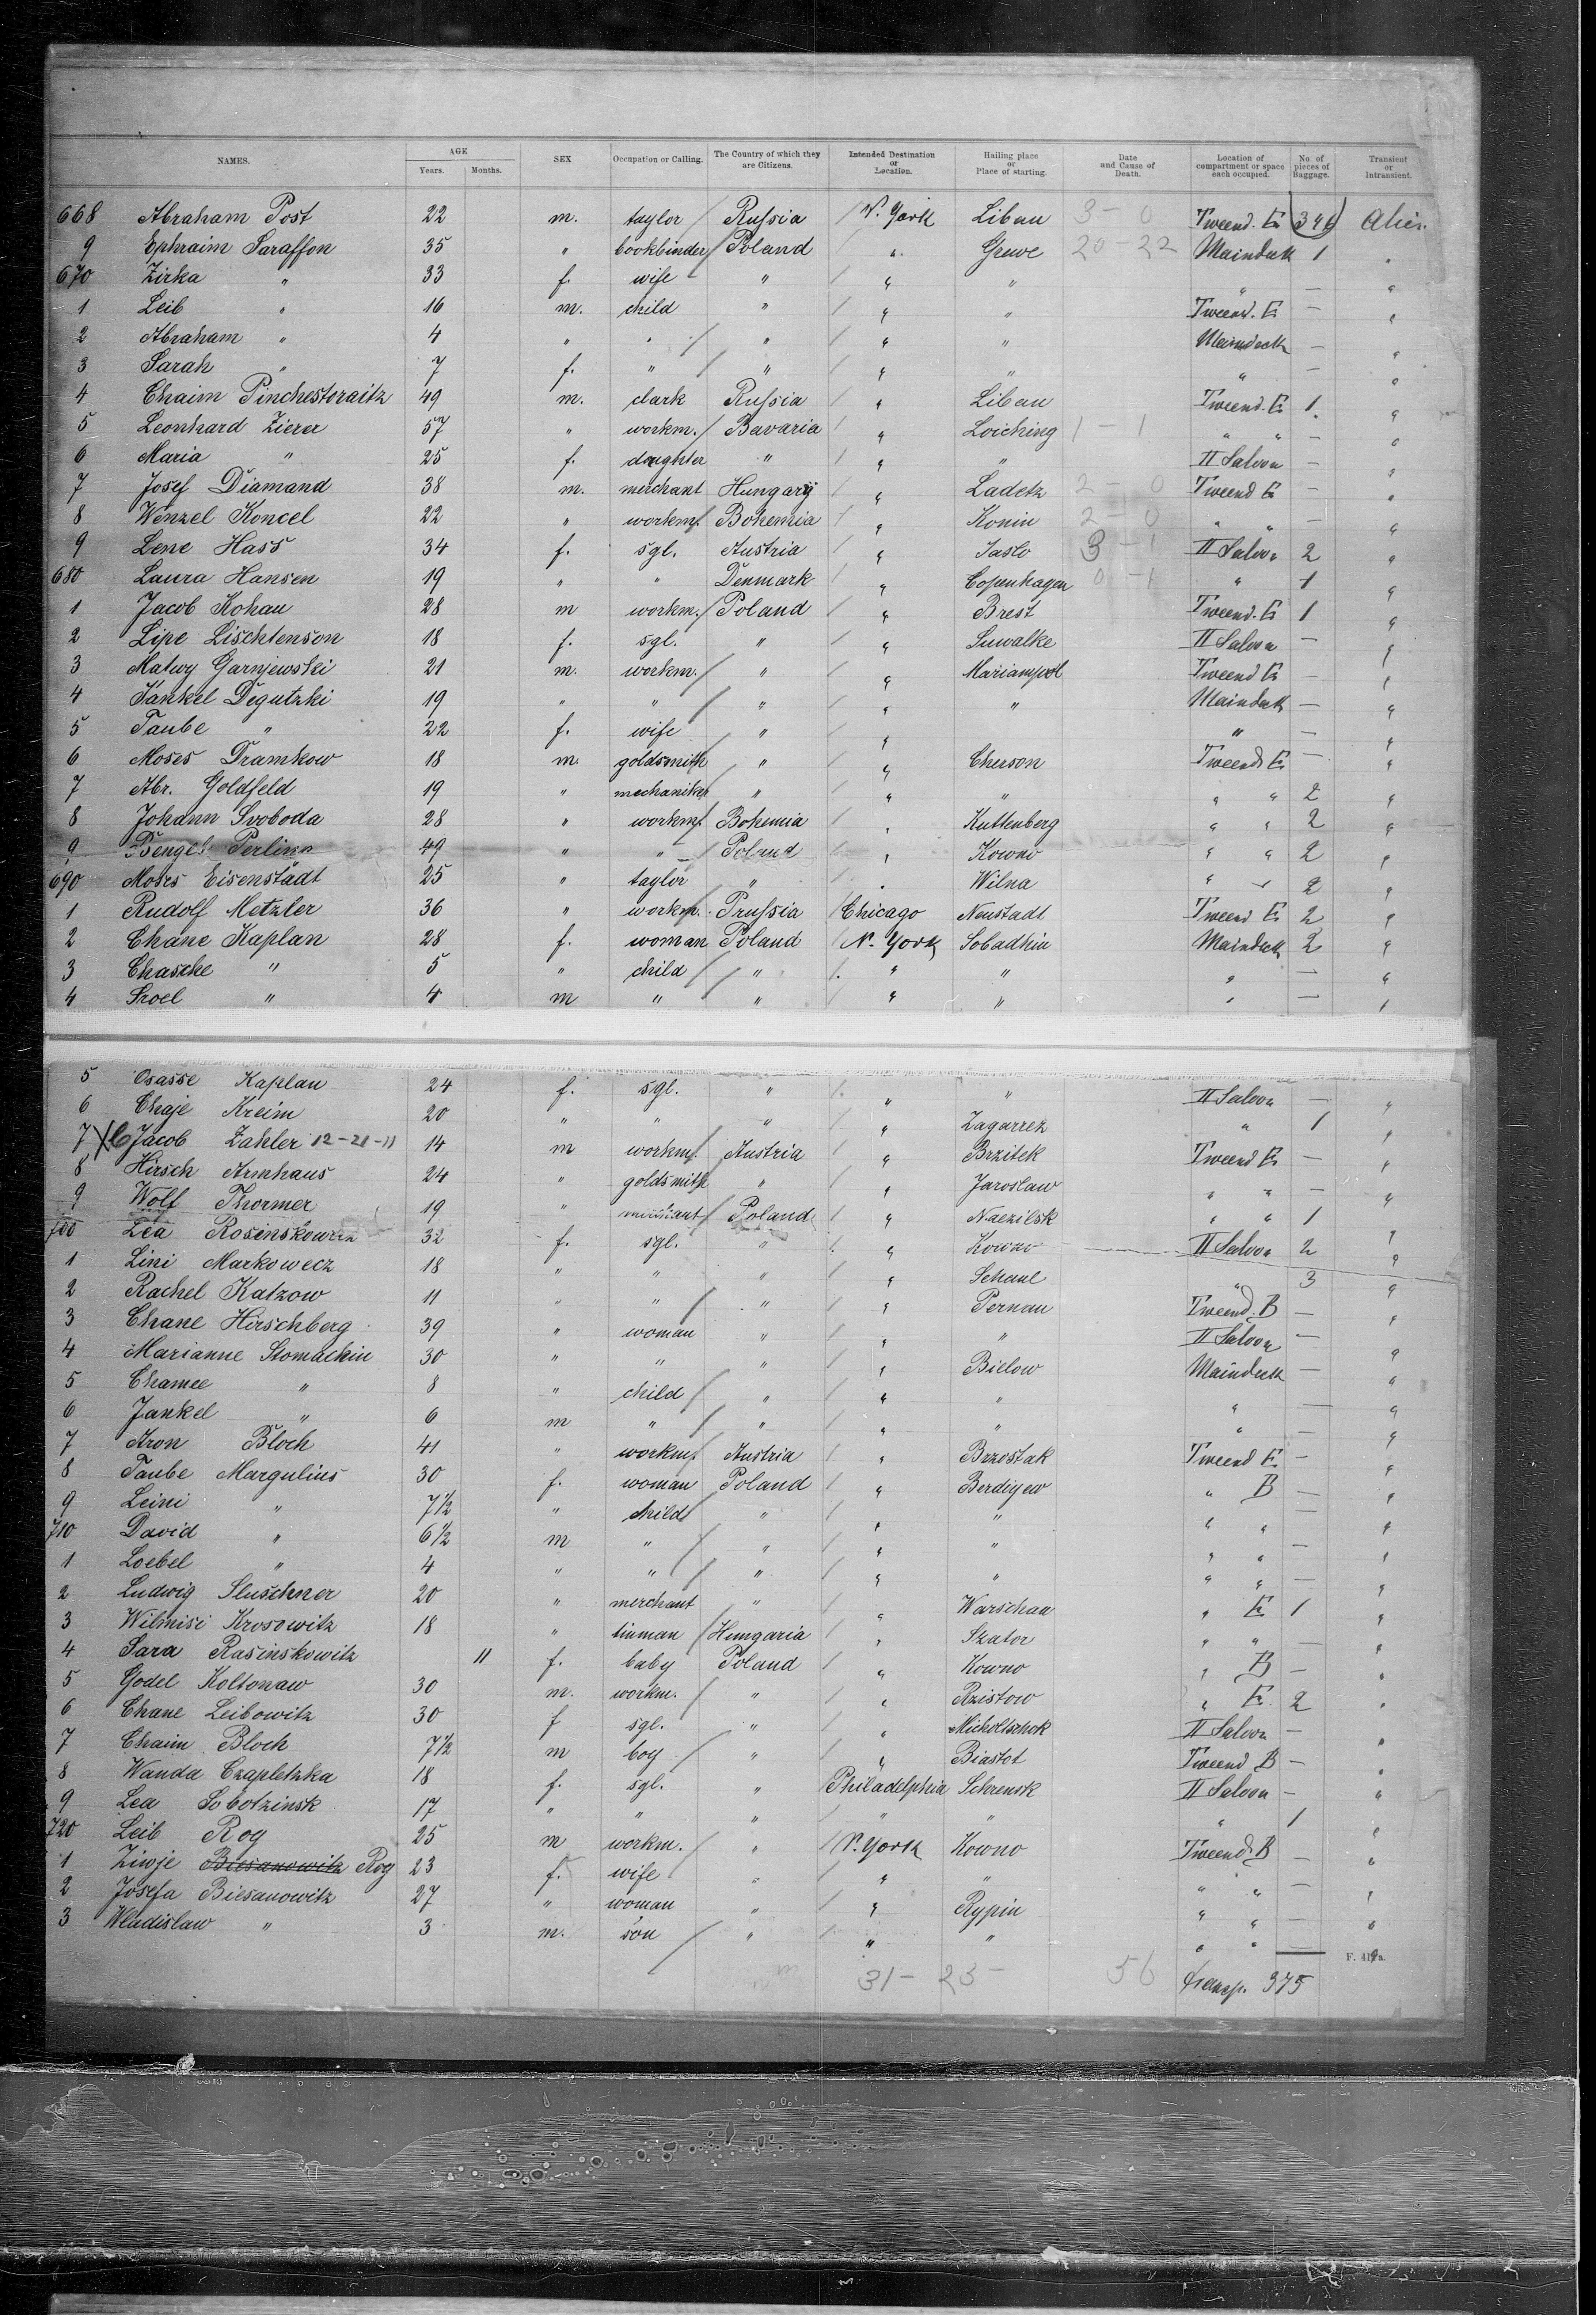 NAMES. AGE Years. Months. SEX Occupation or Calling. The Country of which they are Citizens. Intended Destination or Location. Hailing place or Place of starting. Date and Cause of Death. Location of compartment or space each occupied. No. of pieces of Baggage. Transient or Intransient.
668 Abraham Post 22 m. taylor / Russia / N. York Libau 3 - 0 Tweend. E 346 Alien
9 Ephraim Saraffon 35 " bookbinder / Poland / " Grewe 20 - 22 Maindeck 1 "
670 Zirka " 33 f. wife " / " " " — "
1 Leib " 16 m. child " / " " Tweend. E — "
2 Abraham " 4 " " / " / " " Maindeck — "
3 Sarah " 7 f. " / " / " " " — "
4 Chaim Pinchestoraitz 49 m. clark Russia / " Libau Tweend. E 1. "
5 Leonhard Zierer 57 " workm. / Bavaria / " Loiching 1 - 1 " " — "
6 Maria " 25 f. daughter " / " " II Saloon — "
7 Josef Diamand 38 m. merchant Hungary / " Ladetz 2 - 0 Tweend E — "
8 Wenzel Koncel 22 " workm. / Bohemia / " Konin 2 - 0 " " — "
9 Lene Hass 34 f. sgl. Austria / " Jaslo 3 - 1 II Saloon 2 "
680 Laura Hansen 19 " " Denmark " Copenhagen 0 - 1 " 1 "
1 Jacob Kohan 28 m workm. / Poland / " Brest Tweend. E 1 "
2 Lipe Lischtenson 18 f. sgl. " / " Suwalke II Saloon — "
3 Matwy Garnjewski 21 m. workm. / " / " Mariampol Tweend E — "
4 Jankel Degutzki 19 " " / " / " " Maindeck — "
5 Taube " 22 f. wife " / " " — "
6 Moses Dramkow 18 m. goldsmith " / " Cherson Tweend E — "
7 Abr. Goldfeld 19 " mechaniker " / " " " " 2 "
8 Johann Svoboda 28 " workm. / Bohemia / " Kuttenberg " " 2 "
9 Perlina 49 " " / Poland / " Kowno " " 2 "
690 Moses Eisenstadt 25 " taylor " / " Wilna " " 2 "
1 Rudolf Metzler 36 " workm. Prussia / Chicago Neustadt Tweend E 2 "
2 Chane Kaplan 28 f. woman Poland / N. York Sobadhin Maindeck 2 "
3 Chasche " 5 " child / " / " " " — "
4 Sroel " 4 m " / " / " " " — "
5 Osasse Kaplan 24 f. sgl. " / " " II Saloon — "
6 Chaje Kreim 20 " " " / " Zagarrez " 1 "
7 Jacob Zahler 12-21-11 14 m workm. / Austria / " Brzitek Tweend E — "
8 Hirsch Armhaus 24 " goldsmith " / " Jaroslaw " " — "
9 Wolf Thormer 19 " merchant / Poland / " Naezilsk " " 1 "
700 Lea Rosinskowitz 32 f. sgl. " / " Kowno II Saloon 2 "
1 Lini Markowecz 18 " " " / " Schaul " 3 "
2 Rachel Katzow 11 " " / " / " Pernau Tweend. B — "
3 Chane Hirschberg 39 " woman " / " " II Saloon — "
4 Marianne Stomachin 30 " " " / " Bielow Maindeck — "
5 Chamee " 8 " child / " / " " " — "
6 Jankel " 6 m " / " / " " " — "
7 Aron Bloch 41 " workm. / Austria / " Brzostak Tweend E — "
8 Taube Margulius 30 f. woman Poland / " Berdigew " B — "
9 Leini " 7 1/2 " child / " / " " " " — "
710 David " 6 1/2 m " / " / " " " " — "
1 Loebel " 4 " " / " / " " " " — "
2 Ludwig Sluschner 20 " merchant " / " Warschau " E 1 "
3 Wilmisi Krosowitz 18 " tinman / Hungaria / " Szator " " — "
4 Sara Rasinskowitz 11 f. baby Poland / " Kowno " B — "
5 Godel Koltonaw 30 m. workm. / " / " Rzistow " E 2 "
6 Chane Leibowitz 30 f sgl. " / " Micholtschok II Saloon — "
7 Chaim Bloch 7 1/2 m boy / " / " Biastot Tweend B — "
8 Wanda Czapletzka 18 f. sgl. " / Philadelphia Schrensk II Saloon — "
9 Lea Sobotzinsk 17 " " " / " " " 1 "
720 Leib Rog 25 m workm. / " / N. York Kowno Tweend B — "
1 Ziwje Biesanowitz Rog 23 f. wife " / " " " " — "
2 Josefa Biesanowitz 27 " woman " / " Rypin " " — "
3 Wladislaw " 3 m. son / " / " " " " — "
F. 411a.
31 - 25 - 56 transp. 375